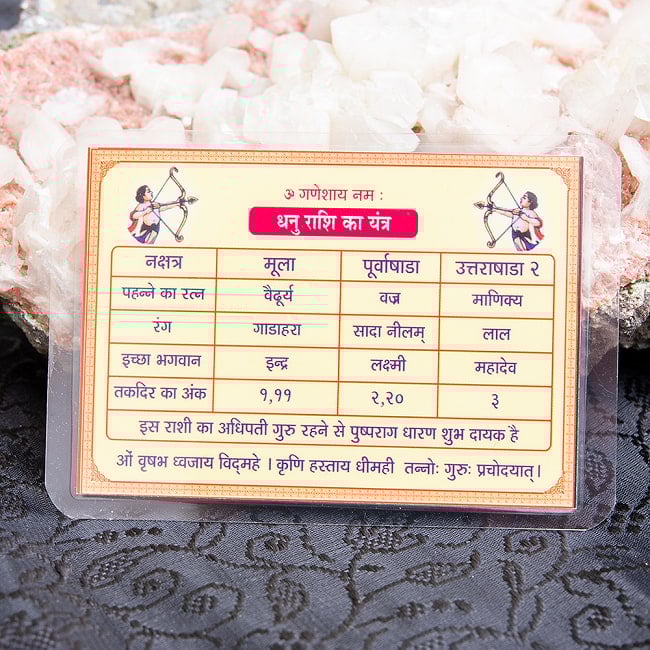 ॐ गणेशाय नम :
धनु राशि का यंत्र
नक्षत्र मूला पूर्वाषाडा उत्तराषाडा २
पहन्ने का रत्न वैढूर्य वज्र माणिक्य
रंग गाडाहरा सादा नीलम् लाल
इच्छा भगवान इन्द्र लक्ष्मी महादेव
तकदिर का अंक १,११ २,२० ३
इस राशी का अधिपती गुरु रहने से पुष्पराग धारण शुभ दायक है
ओं वृषभ ध्वजाय विद्महे । कृणि हस्ताय धीमही तन्नोः गुरुः प्रचोदयात् ।